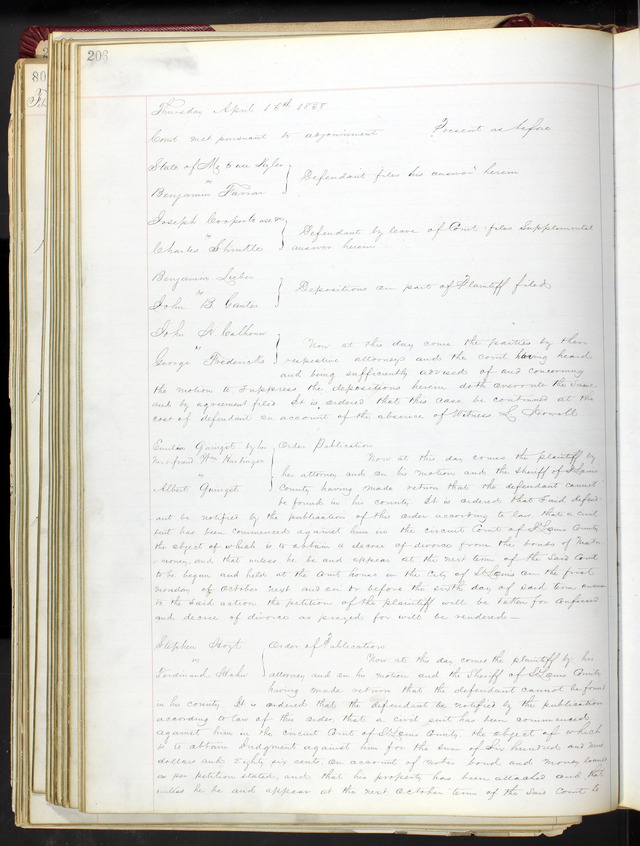 206
80
Thursday April 15th 1858
Court met pursuant to adjournment Present as before
State of Mo to use
vs
Benjamin Farrar
Defendant files his answer herein
Joseph Cooper to use
vs
Charles
Defendant by leave of Court files Supplemental
answer herein
Benjamin
vs
John B
Depositions on part of Plaintiff filed
John Calhoun
vs
George Fredericks
Now at this day come the parties by their
respective attorneys and the court having heard
and being sufficiently advised of and concerning
the motion to suppress the depositions herein doth overrule the same
and by agreement filed It is ordered that this case be continued at the
cost of defendant on account of the absence of Witness L Howell
by her
next friend Wm
vs
Albert
Order Publication
Now at this day comes the plaintiff by
her attorney and on his motion and the Sheriff of St Louis
County having made return that the defendant cannot
be found in his county It is ordered that said defend-
ant be notified by the publication of this order according to law that a civil
suit has been commenced against him in the circuit Court of St Louis County
the object of which is to obtain a decree of divorce from the bonds of Matri-
mony and that unless he be and appear at the next term of the said Court
to be begun and held at the Court house in the City of St Louis on the first
Monday of October next and on or before the sixth day of said term answer
to the said action the petition of the plaintiff will be taken for confessed
and decree of divorce as prayed for will be rendered
Stephen Hoyt
vs
Ferdinand Hahn
Order of Publication
Now at this day comes the plaintiff by his
attorney and on his motion and the Sheriff of St Louis County
having made return that the defendant cannot be found
in his county. It is ordered that the defendant be notified by the publication
according to law of this order that a civil suit has been commenced
against him in the circuit Court of St Louis County the object of which
is to obtain Judgment against him for the sum of Six hundred and nine
dollars and Eighty six cents on account of notes bond and money loaned
as per petition stated, and that his property has been attached and that
unless he be and appear at the next October term of the said Court to